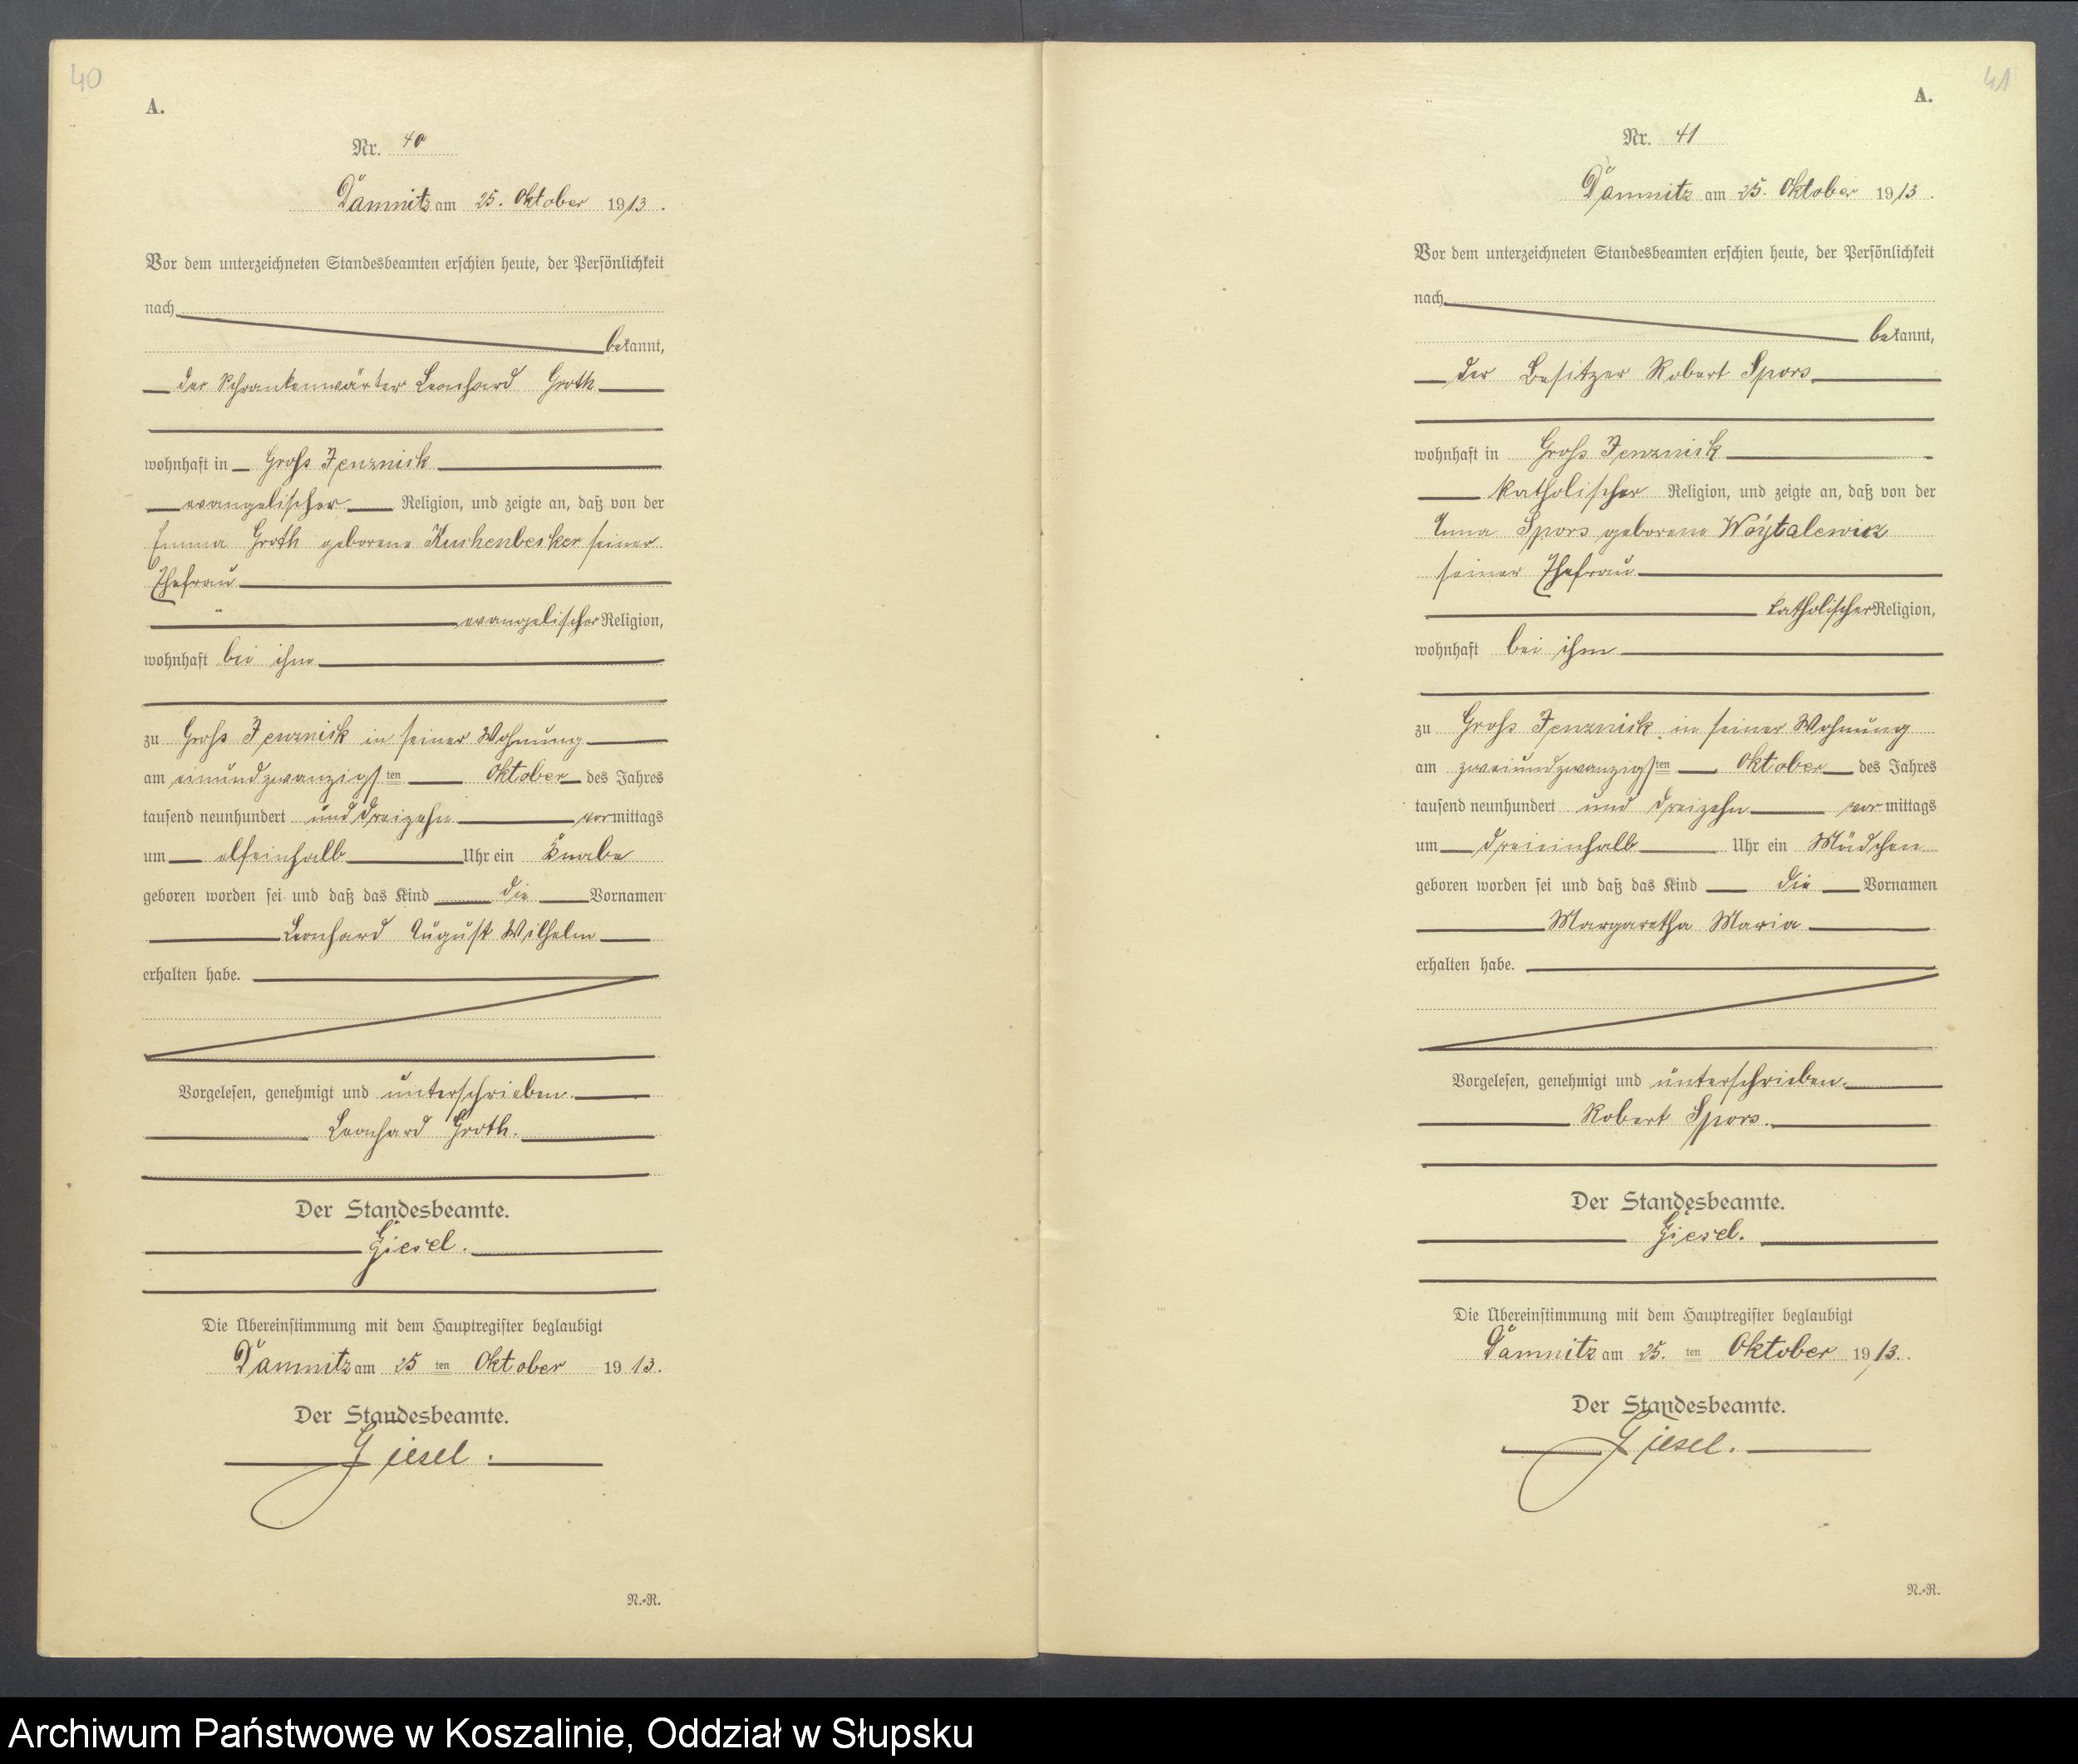 40
A.
Nr. 40
Damnitz am 25. Oktober 1913.
Vor dem unterzeichneten Standesbeamten erschien heute, der Persönlichkeit
nach
bekannt,
der Schrankenwärter Leonhard Groth
wohnhaft in Groß Jenznick
evangelischer Religion, und zeigte an, daß von der
Emma Groth geborene Kushenbecker seiner
Ehefrau
evangelischer Religion,
wohnhaft bei ihm
zu Groß Jenznick in seiner Wohnung
am einundzwanzigsten Oktober des Jahres
tausend neunhundert und dreizehn vormittags
um elfeinhalb Uhr ein Knabe
geboren worden sei und daß das Kind die Vornamen
Leonhard August Wilhelm
erhalten habe.
Vorgelesen, genehmigt und unterschrieben.
Leonhard Groth.
Der Standesbeamte.
Giesel.
Die Übereinstimmung mit dem Hauptregister beglaubigt
Damnitz am 25 ten Oktober 1913.
Der Standesbeamte.
Giesel.
N.-R.
41
A.
Nr. 41
Damnitz am 25. Oktober 1913.
Vor dem unterzeichneten Standesbeamten erschien heute, der Persönlichkeit
nach
bekannt,
der Besitzer Robert Spors
wohnhaft in Groß Jenznick
katholischer Religion, und zeigte an, daß von der
Anna Spors geborene Woytalewicz
seiner Ehefrau
katholischer Religion,
wohnhaft bei ihm
zu Groß Jenznick in seiner Wohnung
am zweiundzwanzigsten Oktober des Jahres
tausend neunhundert und dreizehn vormittags
um dreieinhalb Uhr ein Mädchen
geboren worden sei und daß das Kind die Vornamen
Margaretha Maria
erhalten habe.
Vorgelesen, genehmigt und unterschrieben.
Robert Spors.
Der Standesbeamte.
Giesel.
Die Übereinstimmung mit dem Hauptregister beglaubigt
Damnitz am 25. ten Oktober 1913.
Der Standesbeamte.
Giesel.
N.-R.
Archiwum Państwowe w Koszalinie, Oddział w Słupsku